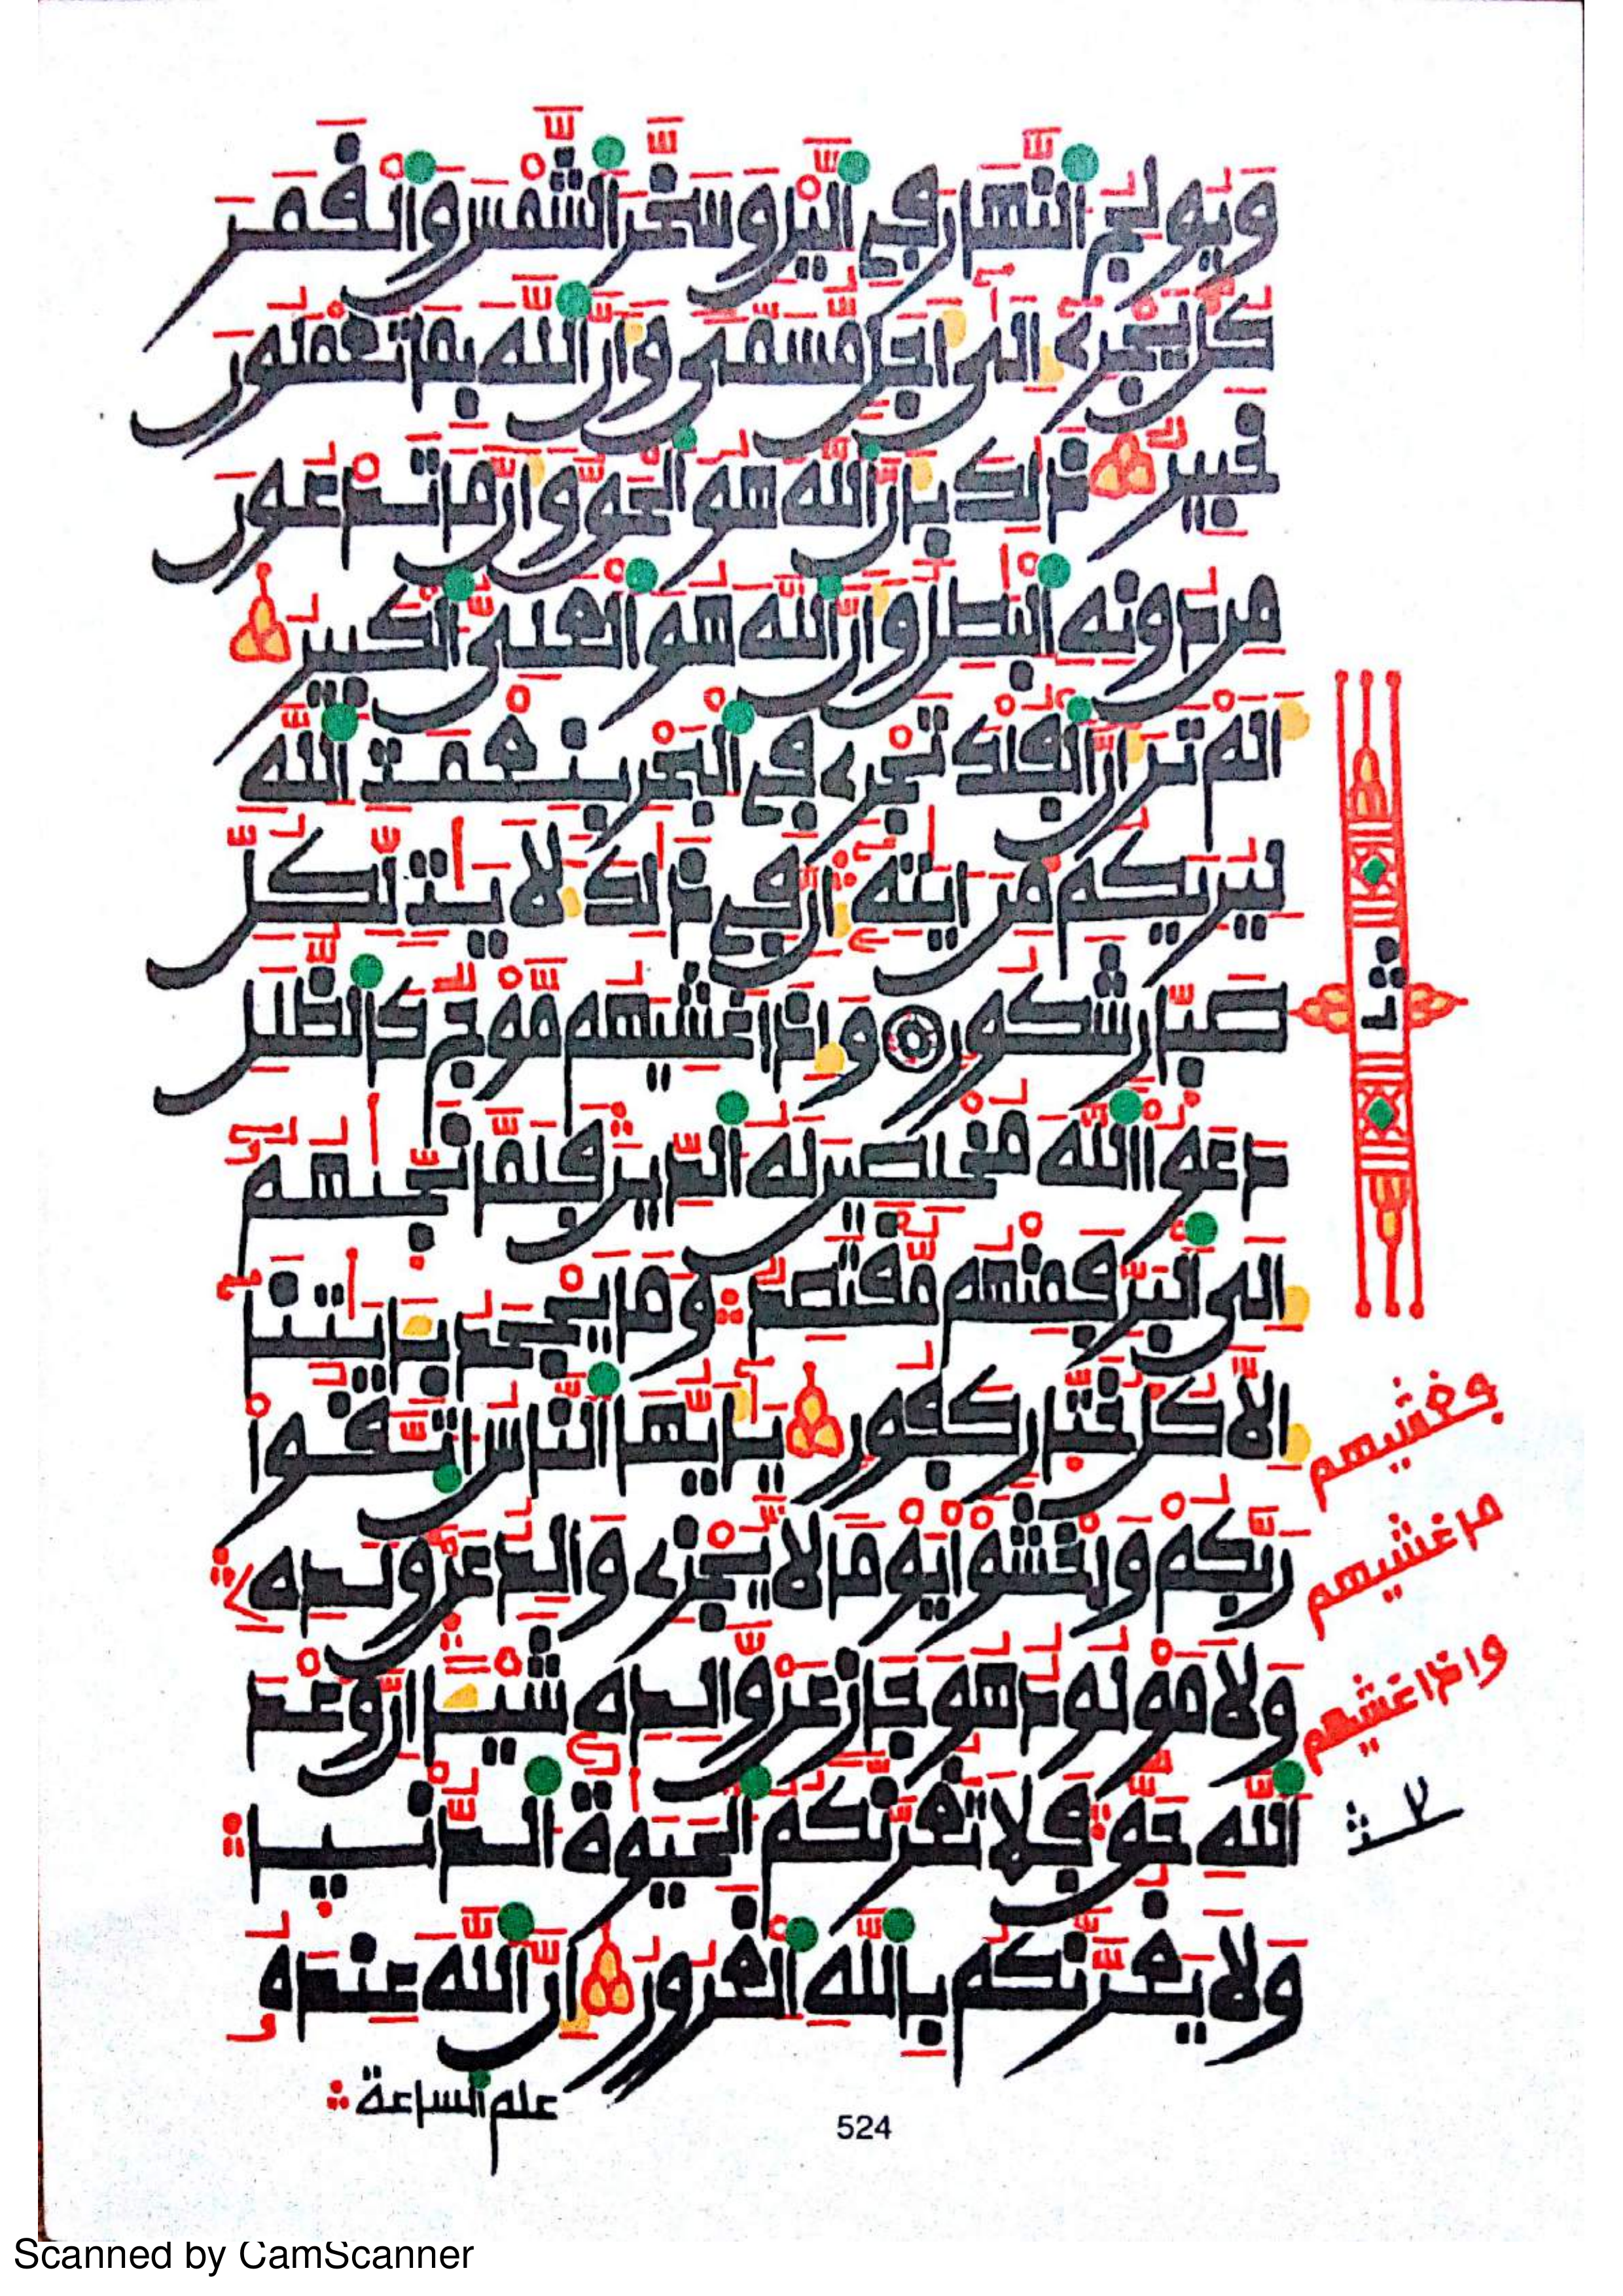 وَيُولِجُ اَ۬لنَّهَارَ فِے اِ۬ليْلِ وَسَخَّرَ اَ۬لشَّمْسَ وَالْقَمَرَ
كُلٌّ يَجْرِےٓ إِلَىٰٓ أَجَلٖ مُّسَمّٗى وَأَنَّ اَ۬للَّهَ بِمَا تَعْمَلُونَ
خَبِيرٞ ذَٰلِكَ بِأَنَّ اَ۬للَّهَ هُوَ اَ۬لْحَقُّ وَأَنَّ مَا تَدْعُونَ
مِن دُونِهِ اِ۬لْبَٰطِلُ وَأَنَّ اَ۬للَّهَ هُوَ اَ۬لْعَلِيُّ اُ۬لْكَبِيرُ
أَلَمْ تَرَ أَنَّ اَ۬لْفُلْكَ تَجْرِے فِے اِ۬لْبَحْرِ بِنِعْمَتِ اِ۬للَّهِ
لِيُرِيَكُم مِّنَ اٰيَٰتِهِۦٓ إِنَّ فِے ذَٰلِكَ لَأٓيَٰتٖ لِّكُلِّ
صَبّٖارٖ شَكُورٖ وَإِذَا غَشِيَهُم مَّوْجٞ كَالظُّلَلِ
دَعَوُاْ اُ۬للَّهَ مُخْلِصِينَ لَهُ اُ۬لدِّينَ فَلَمَّا نَجَّىٰهُمُۥٓ
إِلَى اَ۬لْبَرِّ فَمِنْهُم مُّقْتَصِدٞ وَمَا يَجْحَدُ بِـَٔايَٰتِنَآ
إِلَّا كُلُّ خَتّٖارٖ كَفُورٖ يَٰٓأَيُّهَا اَ۬لنَّاسُ اُ۪تَّقُواْ
رَبَّكُمْ وَاخْشَوْاْ يَوْماٗ لَّا يَجْزِے وَالِدٌ عَنْ وَّلَدِهِۦ
وَلَا مَوْلُودٌ هُوَ جَازٍ عَنْ وَّالِدِهِۦ شَيْـٔاً اِنَّ وَعْدَ
اَ۬للَّهِ حَقّٞ فَلَا تَغُرَّنَّكُمُ اُ۬لْحَيَوٰةُ اُ۬لدُّنْيَا
وَلَا يَغُرَّنَّكُم بِاللَّهِ اِ۬لْغَرُورُ إِنَّ اَ۬للَّهَ عِندَهُۥ
علم الساعة
ثمن
وغشيهم
ما غشيهم
واذا غشيهم
524
Scanned by CamScanner